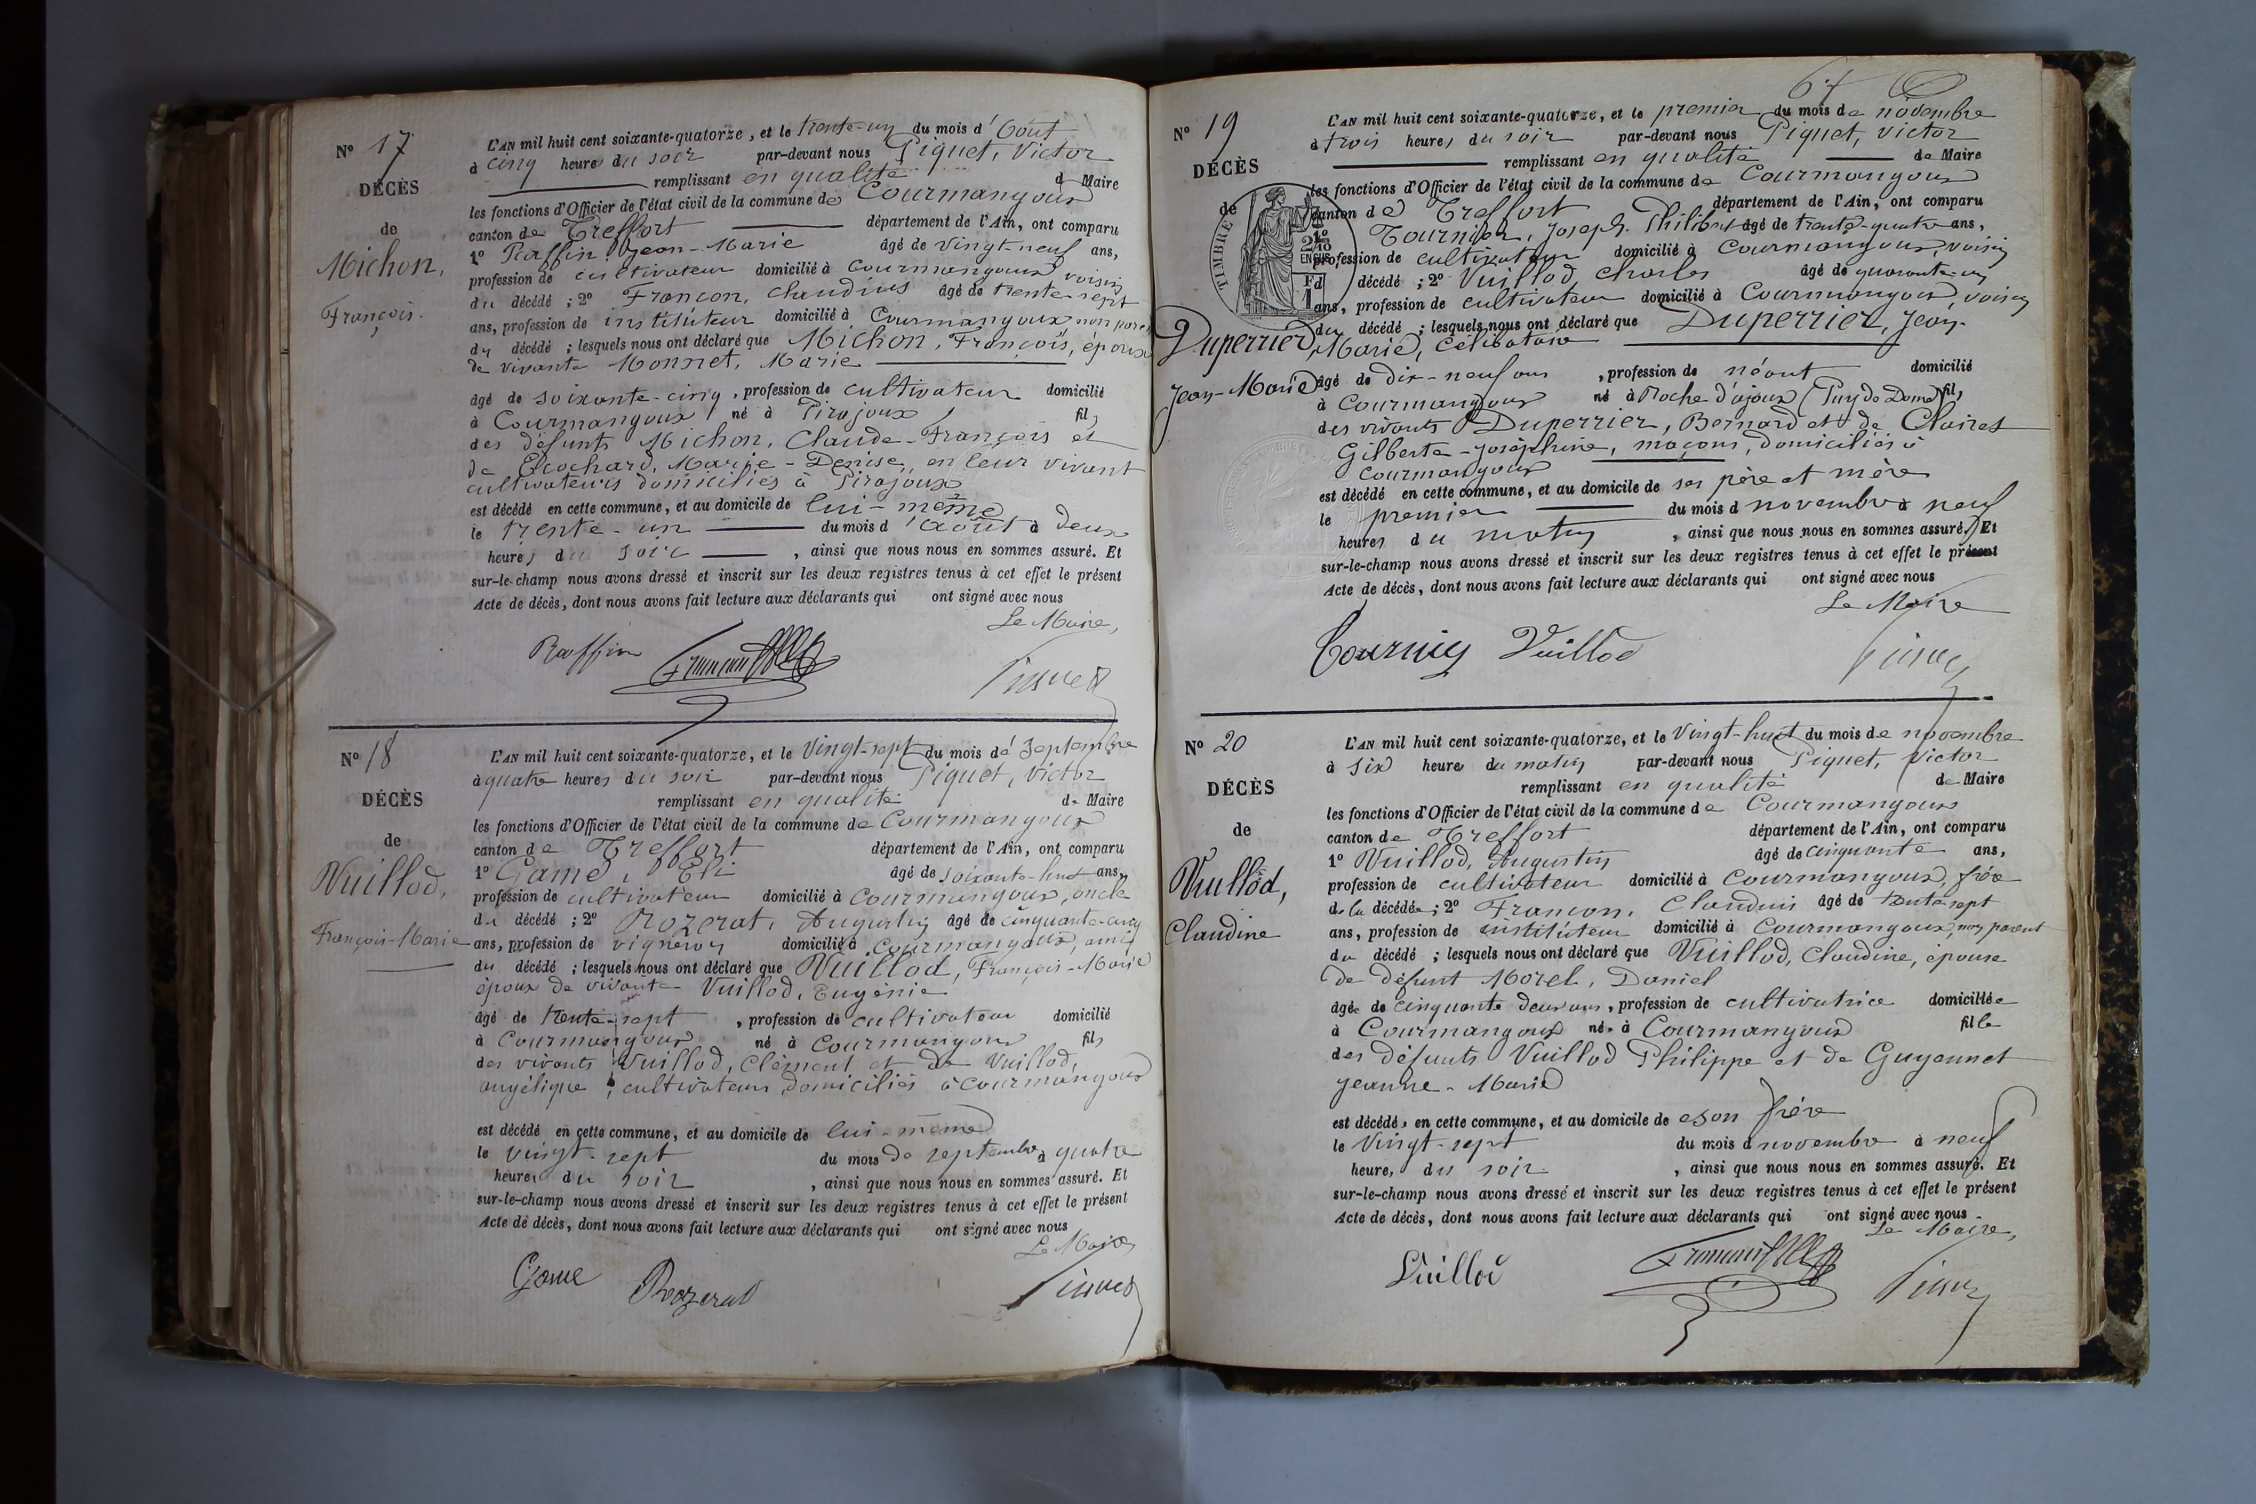 N° 17
DÉCÈS
de
Michon,
François.
L'AN mil huit cent soixante-quatorze, et le trente-un du mois d'Août
à cinq heures du soir par-devant nous Piquet, Victor
remplissant en qualité d Maire
les fonctions d'Officier de l'état civil de la commune de Courmangoux
canton de Treffort département de l'Ain, ont comparu
1° Raffin Jean-Marie âgé de vingt neuf ans,
profession de cultivateur domicilié à Courmangoux voisin
du décédé ; 2° Francon, Claudius âgé de trente-sept
ans, profession de instituteur domicilié à Courmangoux non parent
du décédé ; lesquels nous ont déclaré que Michon, François, époux
de vivante Monnet, Marie
âgé de soixante-cinq, profession de cultivateur domicilié
à Courmangoux né à Pirajoux fils
des défunts Michon, Claude-François et
de Chochard, Marie-Denise, en leur vivant
cultivateurs domiciliés à Pirajoux
est décédé en cette commune, et au domicile de lui-même
le trente-un du mois d'août à deux
heures du soir, ainsi que nous nous en sommes assuré. Et
sur-le-champ nous avons dressé et inscrit sur les deux registres tenus à cet effet le présent
Acte de décès, dont nous avons fait lecture aux déclarants qui ont signé avec nous
Le Maire,
Raffin Francon Piquet
N° 18
DÉCÈS
de
Vuillod,
François-Marie
L'AN mil huit cent soixante-quatorze, et le vingt-sept du mois de septembre
à quatre heures du soir par-devant nous Piquet, Victor
remplissant en qualité de Maire
les fonctions d'Officier de l'état civil de la commune de Courmangoux
canton de Treffort département de l'Ain, ont comparu
1° Game, Eli âgé de soixante-huit ans,
profession de cultivateur domicilié à Courmangoux, oncle
du décédé ; 2° Rozerat, Augustin âgé de cinquante-cinq
ans, profession de vigneron domicilié à Courmangoux, ami
du décédé ; lesquels nous ont déclaré que Vuillod, François-Marie
époux de vivante Vuillod, Eugénie
âgé de trente-sept, profession de cultivateur domicilié
à Courmangoux né à Courmangoux fils
des vivants Vuillod, Clément et de Vuillod,
angélique, cultivateurs domiciliés à Courmangoux
est décédé en cette commune, et au domicile de lui-même
le vingt-sept du mois de septembre à quatre
heures du soir, ainsi que nous nous en sommes assuré. Et
sur-le-champ nous avons dressé et inscrit sur les deux registres tenus à cet effet le présent
Acte de décès, dont nous avons fait lecture aux déclarants qui ont signé avec nous
Le Maire
Game Rozerat Piquet
67
N° 19
DÉCÈS
de
TIMBRE
Duperrier,
Jean-Marie
L'AN mil huit cent soixante-quatorze, et le premier du mois de novembre
à trois heures du soir par-devant nous Piquet, Victor
remplissant en qualité de Maire
les fonctions d'Officier de l'état civil de la commune de Courmangoux
canton de Treffort département de l'Ain, ont comparu
1° Tournier, Joseph-Philibert âgé de trente-quatre ans,
profession de cultivateur domicilié à Courmangoux, voisin
décédé ; 2° Vuillod Charles âgé de quarante-un
ans, profession de cultivateur domicilié à Courmangoux, voisin
du décédé ; lesquels nous ont déclaré que Duperrier, Jean-
Marie, célibataire
âgé de dix-neuf ans, profession de néant domicilié
à Courmangoux né à Roche d'ajoux (Puy de Dome) fils
des vivants Duperrier, Bernard et de Clairet
Gilberte-Joséphine, maçons, domiciliés à
Courmangoux
est décédé en cette commune, et au domicile de ses père et mère
le premier du mois d novembre à neuf
heures du matin, ainsi que nous nous en sommes assuré. Et
sur-le-champ nous avons dressé et inscrit sur les deux registres tenus à cet effet le présent
Acte de décès, dont nous avons fait lecture aux déclarants qui ont signé avec nous
Le Maire
Tournier Vuillod Piquet
N° 20
DÉCÈS
de
Vuillod,
Claudine
L'AN mil huit cent soixante-quatorze, et le vingt-huit du mois de novembre
à six heures du matin par-devant nous Piquet, Victor
remplissant en qualité de Maire
les fonctions d'Officier de l'état civil de la commune de Courmangoux
canton de Treffort département de l'Ain, ont comparu
1° Vuillod, Augustin âgé de cinquante ans,
profession de cultivateur domicilié à Courmangoux, frère
de la décédée ; 2° Francon, Claudius âgé de trente sept
ans, profession de instituteur domicilié à Courmangoux, non parent
du décédé ; lesquels nous ont déclaré que Vuillod, Claudine, épouse
de défunt Morel, Daniel
âgée de cinquante deux ans, profession de cultivatrice domiciliée
à Courmangoux née à Courmangoux fille
des défunts Vuillod Philippe et de Guyennet
Jeanne-Marie
est décédée en cette commune, et au domicile de son frère
le vingt-sept du mois d novembre à neuf
heures du soir, ainsi que nous nous en sommes assuré. Et
sur-le-champ nous avons dressé et inscrit sur les deux registres tenus à cet effet le présent
Acte de décès, dont nous avons fait lecture aux déclarants qui ont signé avec nous
Le Maire,
Vuillod Francon Piquet